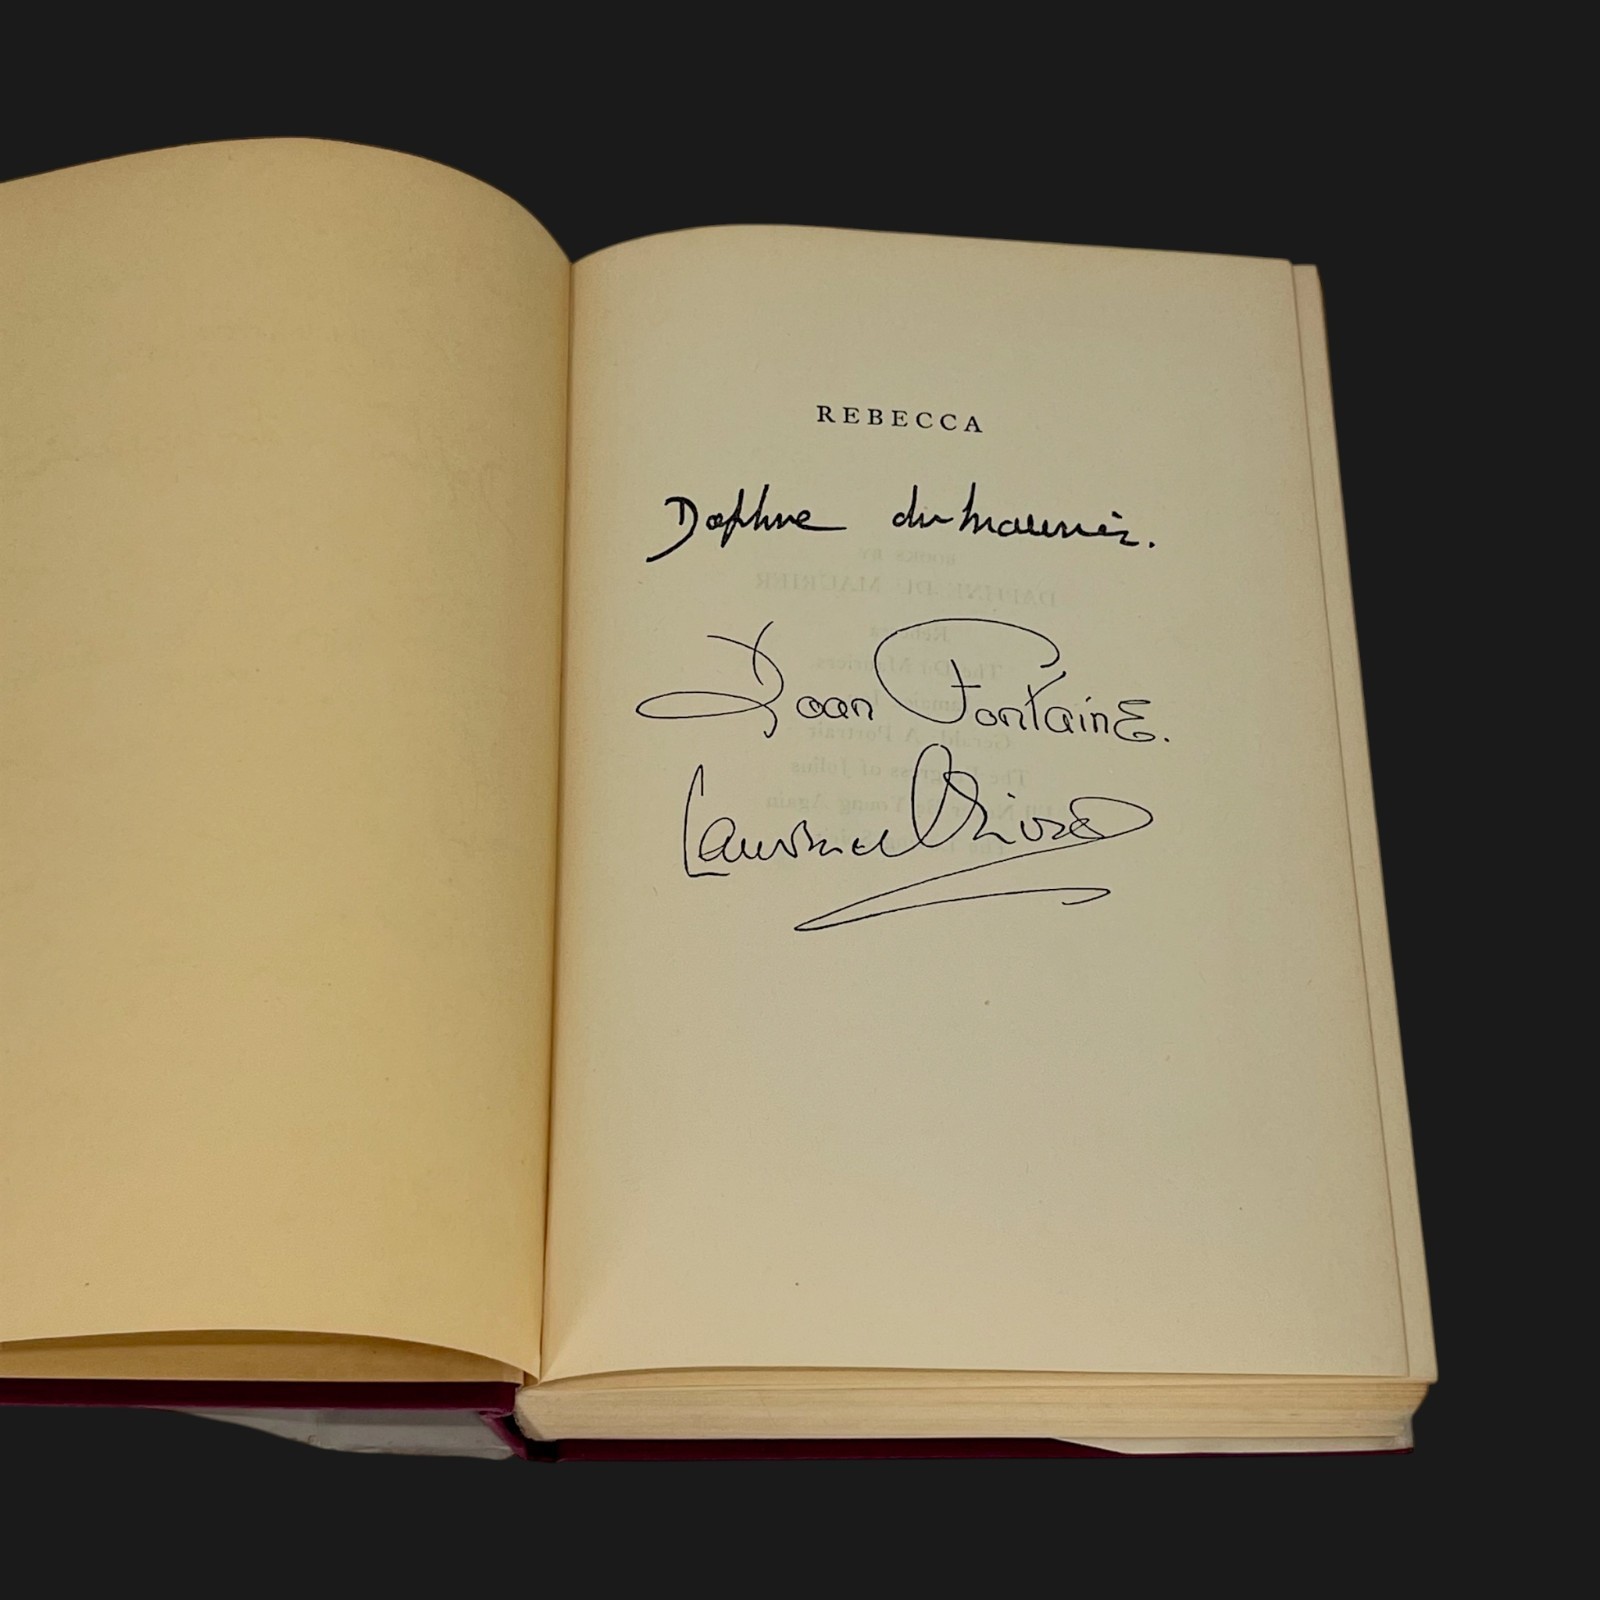 REBECCA
Daphne du Maurier.
Joan Fontaine.
Laurence Olivier
BOOKS BY
DAPHNE DU MAURIER
Rebecca
The Du Mauriers
Jamaica Inn
Gerald: A Portrait
The Progress of Julius
I'll Never Be Young Again